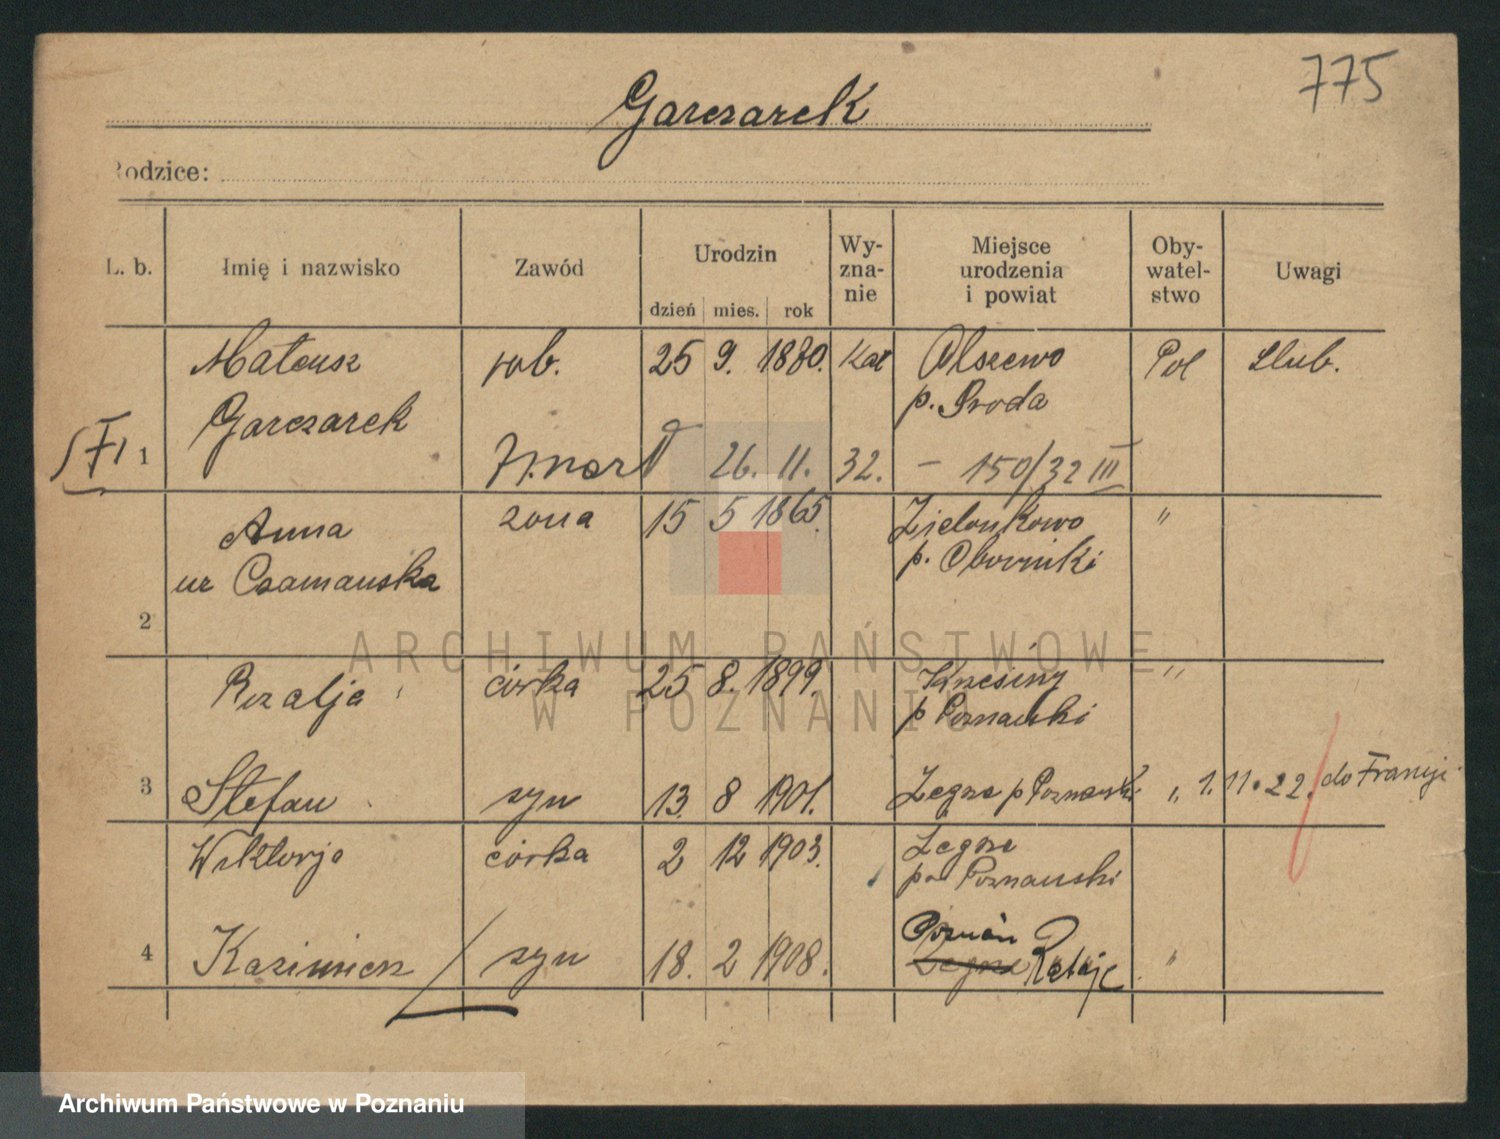 775
Garczarek
Rodzice:
L. b. Imię i nazwisko Zawód Urodzin dzień mies. rok Wy-zna-nie Miejsce urodzenia i powiat Oby-watel-stwo Uwagi
Mateusz rob. 25 9. 1880. Kat Olszewo Pol ślub.
Garczarek p. Środa
1 Zmarł 26. 11. 32. – 150/32 III
Anna żona 15 5 1865. Zielonkowo "
ur Czamańska p. Oborniki
2
Rozalja córka 25 8. 1899. Krzesiny "
p Poznański
3 Stefan syn 13. 8 1901. Żegrze p Poznański " 1.11.22. do Francji
Wiktorja córka 2 12 1903. Żegrze
p Poznański
Poznań
4 Kazimierz syn 18. 2 1908. Żegrze Rataje "
ARCHIWUM PAŃSTWOWE
W POZNANIU
Archiwum Państwowe w Poznaniu